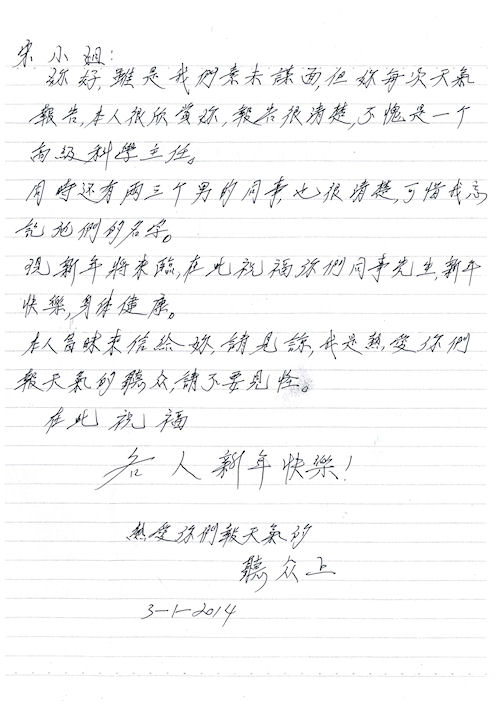 宋小姐:
你好,雖是我們素未謀面,但妳每次天氣
報告,本人很欣賞妳,報告很清楚,不愧是一个
高級科學主任。
同時还有兩三个男的同事,也很清楚,可惜我忘
記他們的名字。
現新年將來臨,在此祝福你們同事先生,新年
快樂,身体健康。
本人冒昧來信給妳,請見諒,我是熱愛你們
報天氣的聽众,請不要見怪。
在此祝福
各人新年快樂!
熱愛你們報天氣的
聽众上
3-1-2014